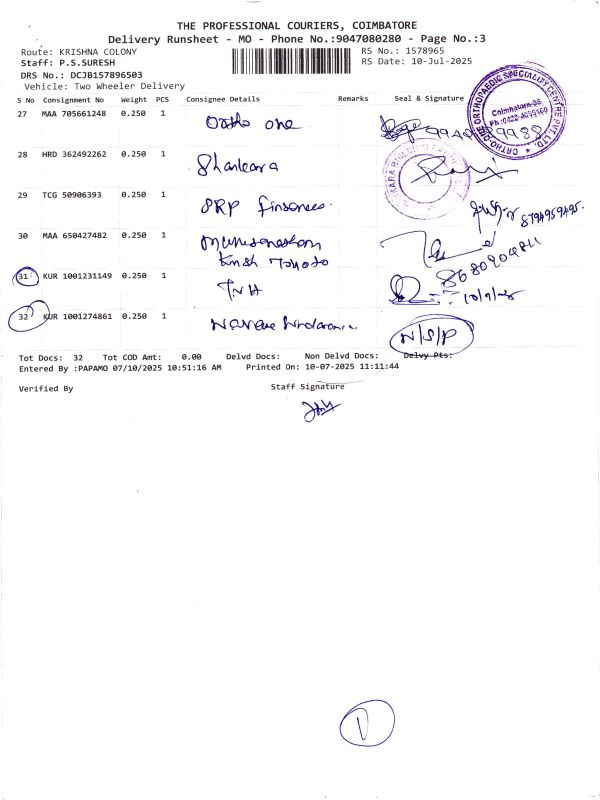 THE PROFESSIONAL COURIERS, COIMBATORE
Delivery Runsheet - MO - Phone No.:9047080280 - Page No.:3
Route: KRISHNA COLONY
RS No.: 1578965
Staff: P.S.SURESH
RS Date: 10-Jul-2025
DRS No.: DCJB157896503
Vehicle: Two Wheeler Delivery
S No Consignment No Weight PCS Consignee Details Remarks Seal & Signature
27 MAA 705661248 0.250 1 Ortho one
ORTHO ONE ORTHOPAEDIC SPECIALITY CENTRE PVT. LTD.
Coimbatore-
28 HRD 362492262 0.250 1 Shankara
29 TCG 50906393 0.250 1 SRP finances
8794959495
30 MAA 650427482 0.250 1
8680900911
31 KUR 1001231149 0.250 1
32 KUR 1001274861 0.250 1
N/S/P
Tot Docs: 32 Tot COD Amt: 0.00 Delvd Docs: Non Delvd Docs: Delvy Pts:
Entered By :PAPAMO 07/10/2025 10:51:16 AM Printed On: 10-07-2025 11:11:44
Verified By
Staff Signature